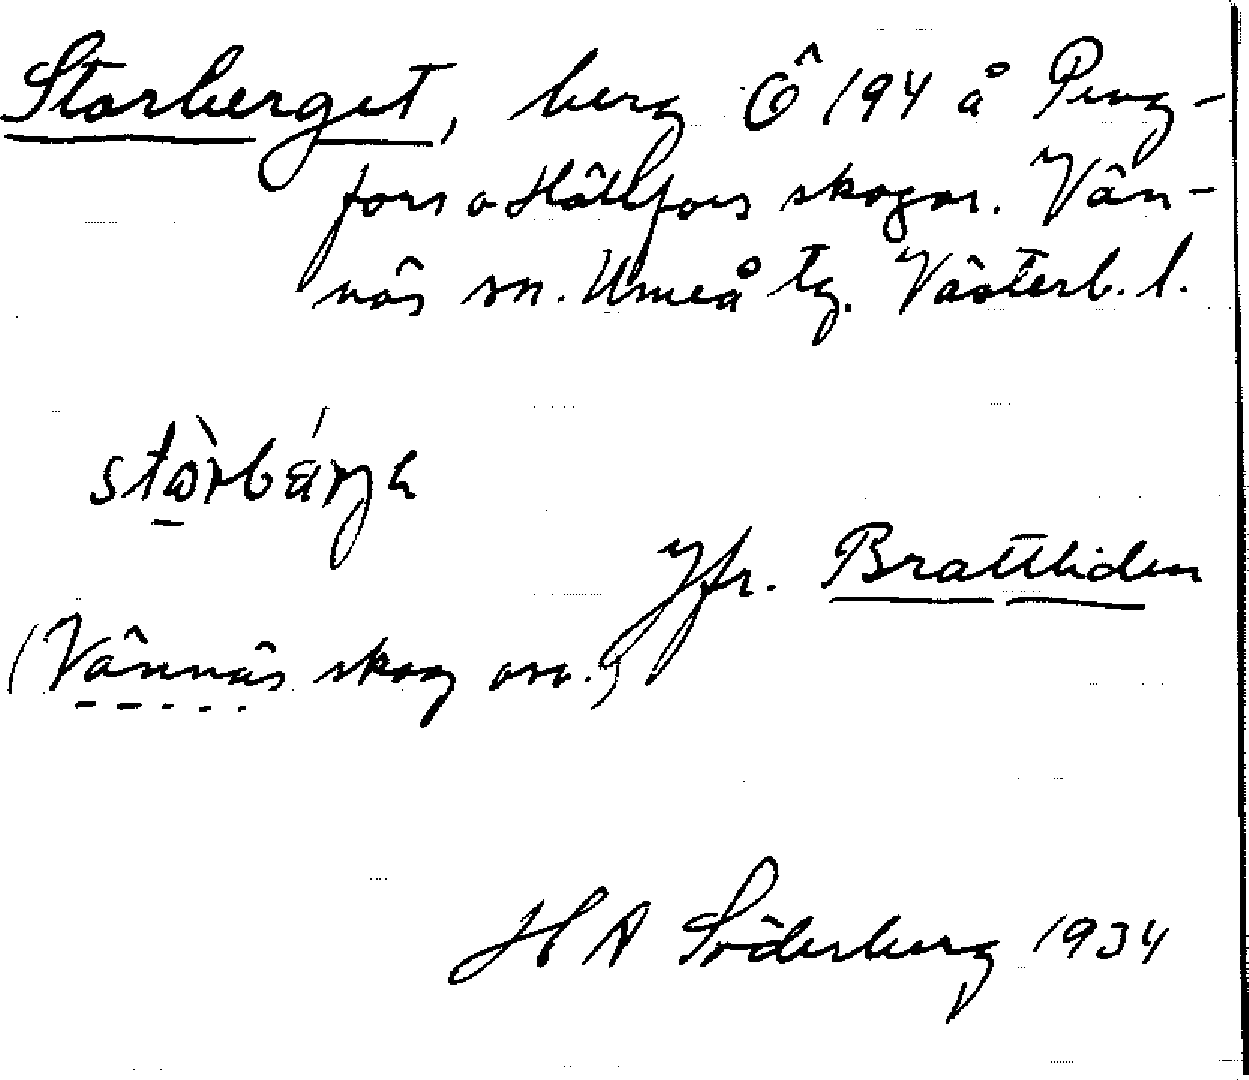 Storberget, berg Ö 194 å Peng-
fors o Hällfors skogar. Vän-
näs sn. Umeå tg. Västerb. l.
Jfr. Brattliden
(Vännäs skog osv.)
H A Söderberg 1934